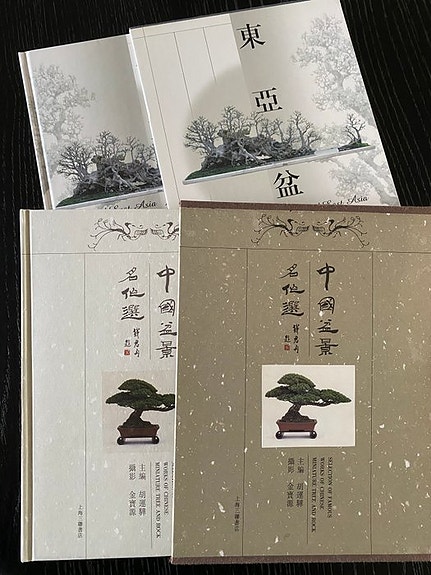 東亞盆
East Asia
East Asia
名作選
WORKS OF CHINESE
MINIATURE TREE AND ROCK
主編 胡運驊
攝影 金寶源
上海三聯書店
中國盆景
名作選
SELECTION OF FAMOUS
WORKS OF CHINESE
MINIATURE TREE AND ROCK
主編 胡運驊
攝影 金寶源
上海三聯書店